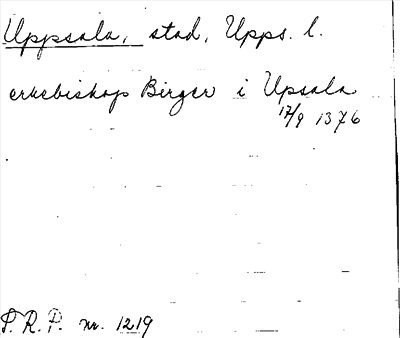 Uppsala, stad, Upps. l.
erkebiskop Birger i Upsala
17/9 1376
S. R. P. nr. 1219